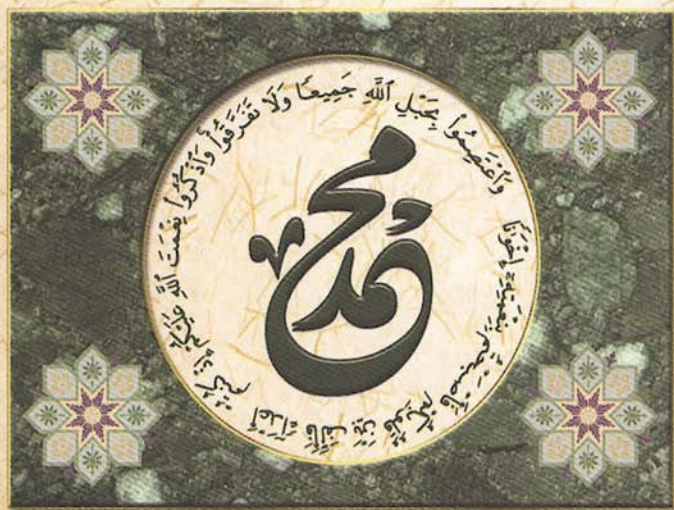 وَٱعْتَصِمُوا۟ بِحَبْلِ ٱللَّهِ جَمِيعًا وَلَا تَفَرَّقُوا۟ وَٱذْكُرُوا۟ نِعْمَتَ ٱللَّهِ عَلَيْكُمْ إِذْ كُنتُمْ أَعْدَآءً فَأَلَّفَ بَيْنَ قُلُوبِكُمْ فَأَصْبَحْتُم بِنِعْمَتِهِۦٓ إِخْوَٰنًا
محمد